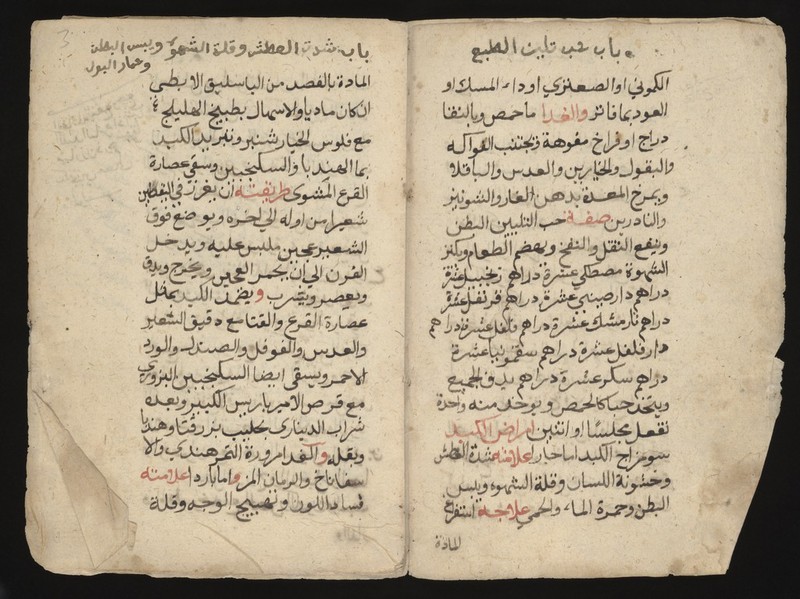 باب حب تليين الطبع
الكموني او الصعتري او دواء المسك او
العود بما فاتر والغدا ماحمص وبالنفا
دراج او فراخ مفوهة ويجتنب الفواكه
والبقول والخيارين والعدس والباقلا
ويمرخ المعدة بدهن الغار والشونيز
والنادرين صفة حب التليين البطن
وينفع الثقل والنفخ ويهضم الطعام ويكثر
الشهوة مصطكي عشرة دراهم زنجبيل عشرة
دراهم دارصيني عشرة دراهم قرنفل عشرة
دراهم نارمشك عشرة دراهم فلفل عشرة دراهم
دارفلفل عشرة دراهم سقمونيا عشرة
دراهم سكر عشرة دراهم يدق الجميع
ويتخذ حبا كالحمص ويوخذ منه واحدة
تفعل مجلسا او اثنين امراض الكبد
سو مزاج الكبد اما حار اعلامته شدة العطش
وخشونة اللسان وقلة الشهوه ويبس
البطن وحمرة الماء والحمي علاجه استفراغ
المادة
باب شدت العطش وقلة الشهوة ويبس البطن
المادة بالفصد من الباسليق الابطي
ان كان ماديا والاسهال بطبيخ الهليلج
مع فلوس الخيار شنبر وتبريد الكبد
بما الهندبا والسكنجبين وسقي عصارة
القرع المشوي طريقته ان يغرز في اليقطين
شعيرا من اوله الي اخره ويوضع فوق
الشعير عجين ملبس عليه ويدخل
الفرن الي ان يحمر العجين ويخرج ويدق
ويعصر ويشرب ويضمد الكبد بمثل
عصارة القرع والقثا مع دقيق الشعير
والعدس والفوفل والصندل والورد
الاحمر ويسقي ايضا السكنجبين البزوري
مع قرص الامير باريس الكبير وبعده
شراب الديناري بحليب بزر قثا وهندبا
وبقله والغدا مزورة التمر هندي والا
سفاناخ والرمان المز واما بارد اعلامته
فساد اللون وتهييج الوجه وقلة